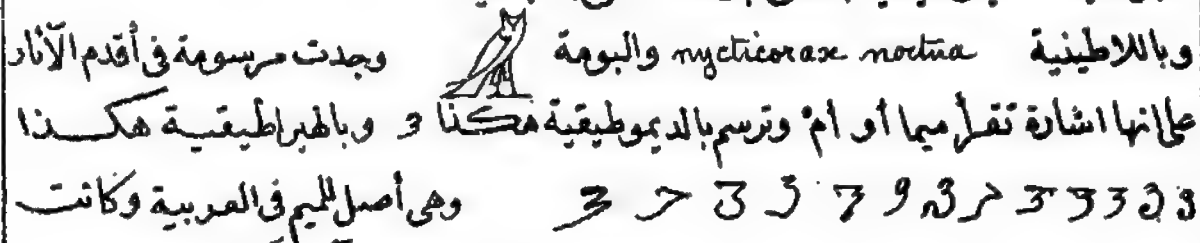 وباللاطينية nycticorax noctua والبومة وجدت مرسومة فى أقدم الآثار
على انها اشارة تقرأ ميما أو أمْ وترسم بالديموطيقية هكذا 3 وبالهيراطيقية هكذا
وهى أصل للميم فى العربية وكانت